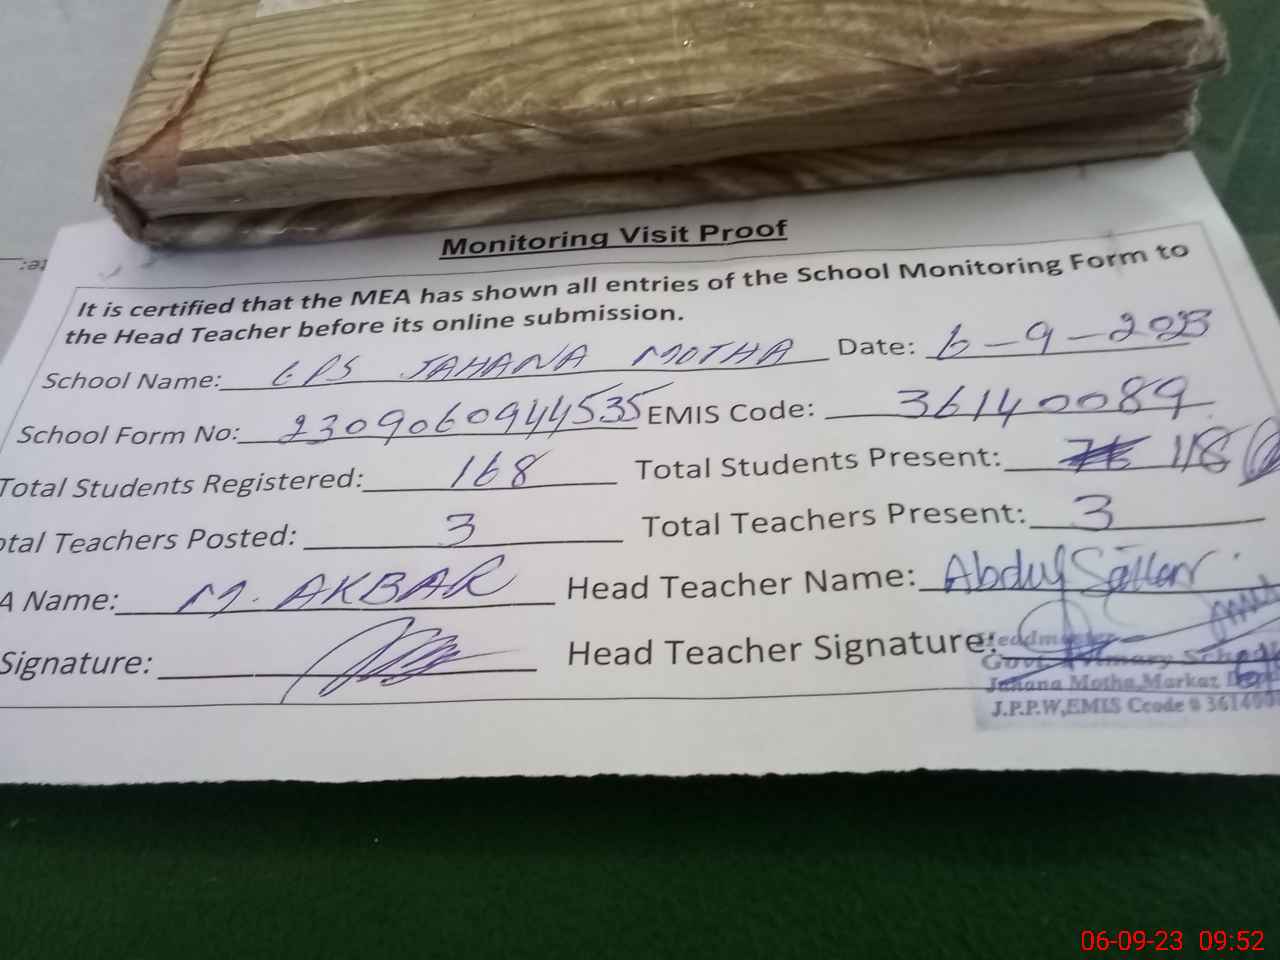 Monitoring Visit Proof
It is certified that the MEA has shown all entries of the School Monitoring Form to
the Head Teacher before its online submission.
School Name: GPS JAHANA MOTHA Date: 6-9-2023
School Form No: 2309060944535 EMIS Code: 36140089
Total Students Registered: 168 Total Students Present: 118
otal Teachers Posted: 3 Total Teachers Present: 3
A Name: M. AKBAR Head Teacher Name: Abdul Sattar
Signature: Head Teacher Signature:
Headmaster
Govt. Primary School
Jahana Motha, Markaz
J.P.P.W, EMIS Ccode # 361400
06-09-23 09:52